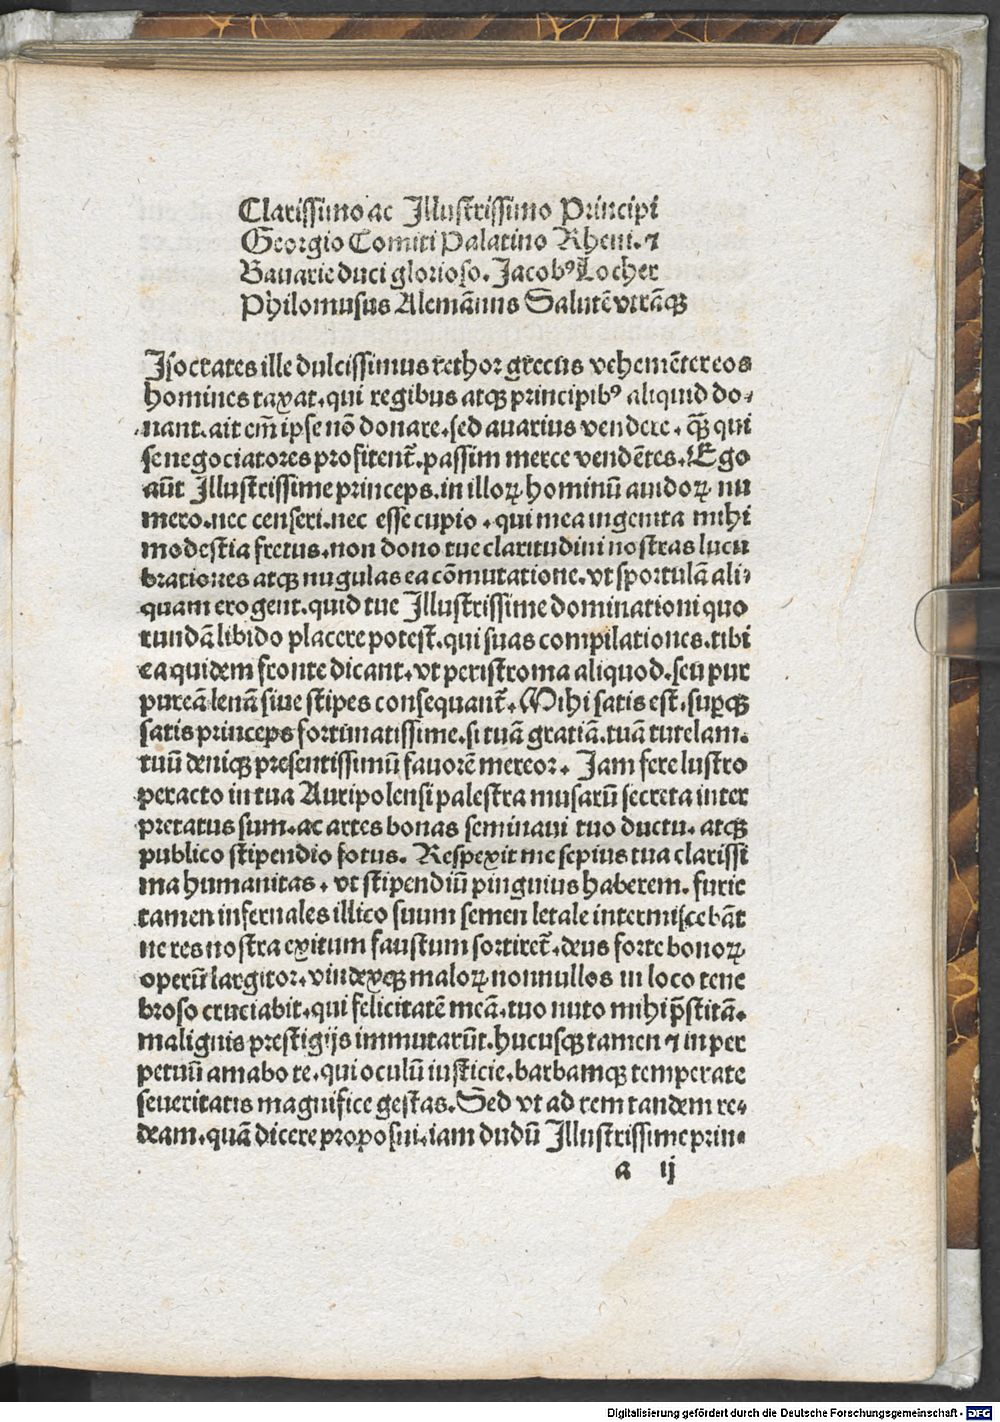 Clarissimo ac Illustrissimo Principi
Georgio Comiti Palatino Rheni. ⁊
Bauarie duci glorioso. Jacobꝰ Locher
Philomusus Alemānus Salutē vtrāqꝫ
Isocrates ille dulcissimus rethor grecus vehemēter eos
homines taxat. qui regibus atqꝫ principibꝰ aliquid do-
nant. ait em̄ ipse nō donare. sed auarius vendere. qꝫ̄ qui
se negociatores profitent̄. passim merce vendētes. Ego
aūt Illustrissime princeps. in illoꝝ hominū auidoꝝ nu
mero. nec censeri. nec esse cupio. qui mea ingenita mihi
modestia fretus. non dono tue claritudini nostras lucu
brationes atqꝫ nugulas ea cōmutatione. vt sportulā ali-
quam erogent. quid tue Illustrissime dominationi quo
rundā libido placere potest. qui suas compilationes. tibi
ea quidem fronte dicant. vt peristroma aliquod. seu pur
pureā lenā siue stipes consequant̄. Mihi satis est. suꝑqꝫ
satis princeps fortunatissime. si tuā gratiā. tuā tutelam.
tuū deniqꝫ presentissimū fauorē mereor. Jam fere lustro
peracto in tua Auripolensi palestra musarū secreta inter
pretatus sum. ac artes bonas seminaui tuo ductu. atqꝫ
publico stipendio fotus. Respexit me sepius tua clarissi
ma humanitas. vt stipendiū pinguius haberem. furie
tamen infernales illico suum semen letale intermiscebāt
ne res nostra exitum faustum sortiret̄. deus forte bonoꝝ
operū largitor. vindexqꝫ maloꝝ nonnullos in loco tene
broso cruciabit. qui felicitatē meā. tuo nuto mihi p̄stitā.
malignis prestigijs immutarūt. hucusqꝫ tamen ⁊ in per
petuū amabo te. qui oculū iusticie. barbamqꝫ temperate
seueritatis magnifice gestas. Sed vt ad rem tandem re-
deam. quā dicere proposui. iam dudū Illustrissime prin-
a ij
Digitalisierung gefördert durch die Deutsche Forschungsgemeinschaft - DFG